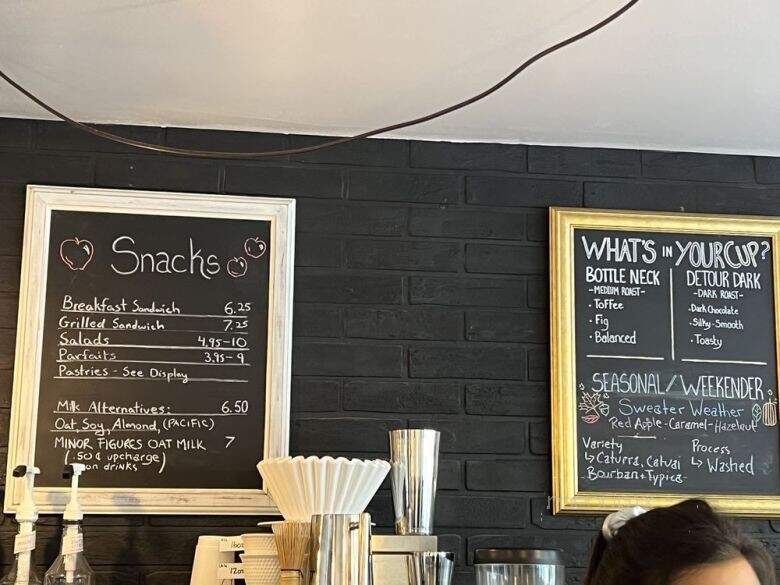 Snacks
Breakfast Sandwich 6.25
Grilled Sandwich 7.25
Salads 4.95-10
Parfaits 3.95-9
Pastries - See Display
Milk Alternatives: 6.50
Oat, Soy, Almond, (PACIFIC)
MINOR FIGURES OAT MILK 7
(.50¢ upcharge)
on drinks
WHAT'S IN YOUR CUP?
BOTTLE NECK
-MEDIUM ROAST-
• Toffee
• Fig
• Balanced
DETOUR DARK
-DARK ROAST-
• Dark Chocolate
• Silky-Smooth
• Toasty
SEASONAL/WEEKENDER
Sweater Weather
Red Apple - Caramel - Hazelnut
Variety
↳ Caturra, Catuai
Bourbon + Typica
Process
↳ Washed
16oz
12oz